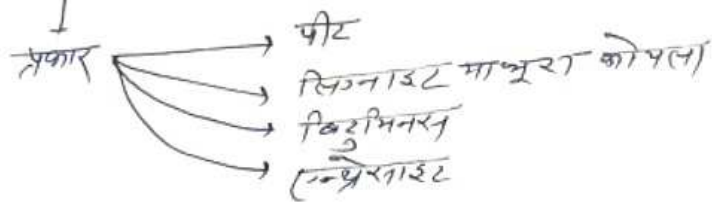 प्रकार
पीट
लिग्नाइट या भूरा कोयला
बिटुमिनस
एन्थ्रेसाइट